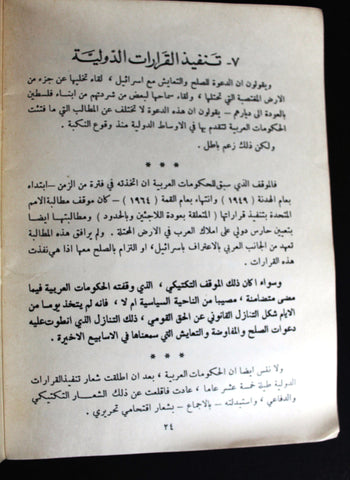 ٧- تنفيذ القرارات الدولية
ويقولون ان الدعوة للصلح والتعايش مع اسرائيل ، لقاء تخليها عن جزء من
الارض المغتصبة التي تحتلها ، ولقاء سماحها لبعض من شردتهم من ابناء فلسطين
بالعودة الى ديارهم – يقولون ان هذه الدعوة لا تختلف عن المطالب التي ما فتئت
الحكومات العربية تتقدم بها في الاوساط الدولية منذ وقوع النكبة .
ولكن ذلك زعم باطل .
* * *
فالموقف الذي سبق للحكومات العربية ان اتخذته في فترة من الزمن – ابتداء
بعام الهدنة ( ١٩٤٩ ) وانتهاء بعام القمة ( ١٩٦٤ ) – كان موقف مطالبة الامم
المتحدة بتنفيذ قراراتها ( المتعلقة بعودة اللاجئين وبالحدود ) ومطالبتها ايضا
بتعيين حارس دولي على املاك العرب في الارض المحتلة . ولم يرافق هذه المطالبة
تعهد من الجانب العربي بالاعتراف باسرائيل ، او التزام بالصلح معها اذا هي نفذت
هذه القرارات .
وسواء اكان ذلك الموقف التكتيكي ، الذي وقفته الحكومات العربية فيما
مضى متضامنة ، مصيبا من الناحية السياسية ام لا ، فانه لم يتخذ يوما من
الايام شكل التنازل القانوني عن الحق القومي ، ذلك التنازل الذي انطوت عليه
دعوات الصلح والمفاوضة والتعايش التي سمعناها في الاسابيع الاخيرة .
* * *
ولا ننس ايضا ان الحكومات العربية ، بعد ان اطلقت شعار تنفيذ القرارات
الدولية طيلة خمسة عشر عاما ، عادت فاقلعت عن ذلك الشعار التكتيكي
والدفاعي ، واستبدلته – بالاجماع – بشعار اقتحامي تحريري .
٢٤